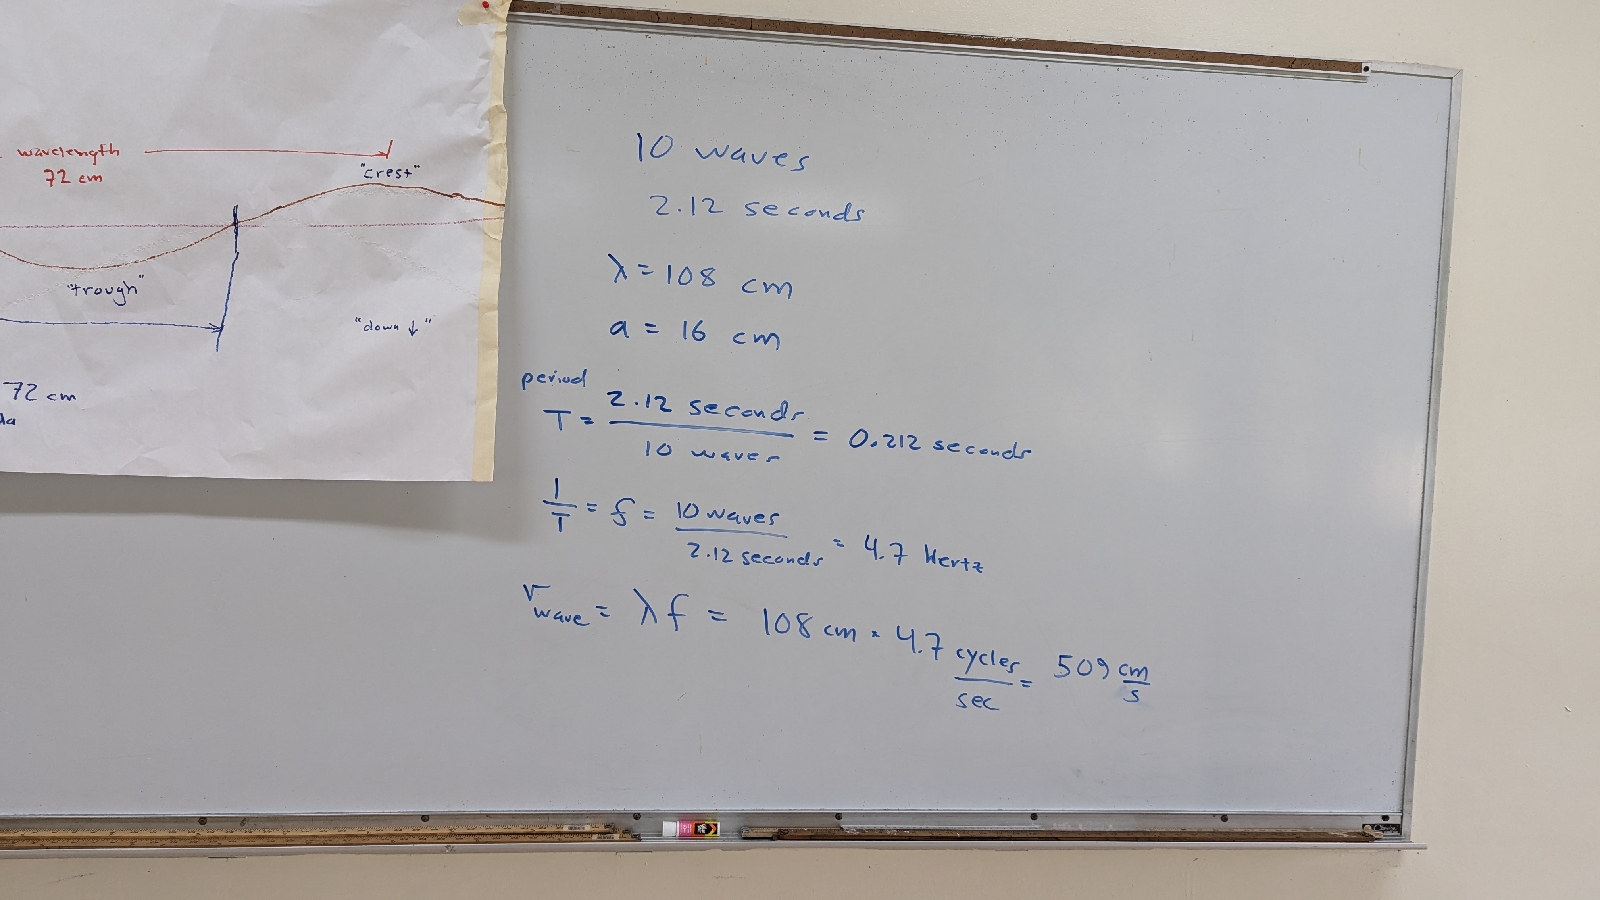 wavelength
72 cm
"crest"
"trough"
"down ↓"
72 cm
da
10 waves
2.12 seconds
λ = 108 cm
a = 16 cm
period
T = 2.12 seconds / 10 waves = 0.212 seconds
1/T = f = 10 waves / 2.12 seconds = 4.7 Hertz
v wave = λf = 108 cm · 4.7 cycles/sec = 509 cm/s